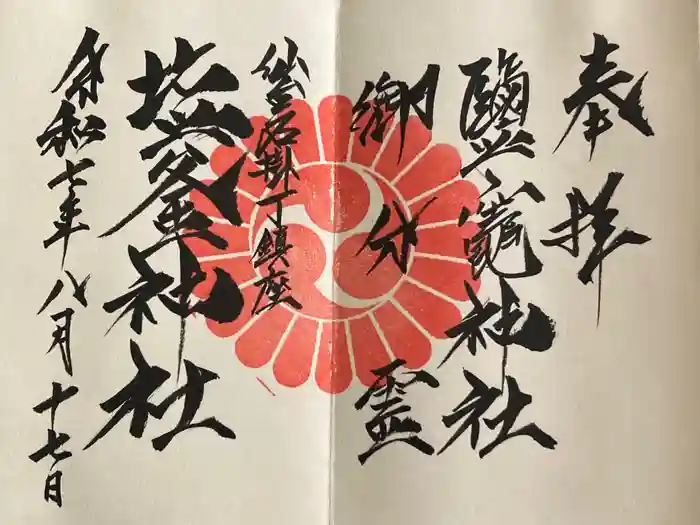 奉拝
鹽竈神社
御分霊
仙台名掛丁鎮座
塩釜神社
令和七年八月十七日